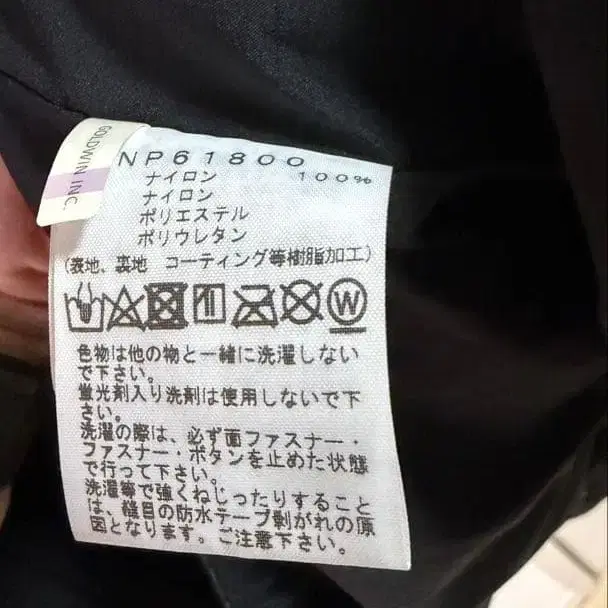 GOLDWIN INC.
NP61800
ナイロン 100%
ナイロン
ポリエステル
ポリウレタン
(表地、裏地 コーティング等樹脂加工)
W
色物は他の物と一緒に洗濯しない
で下さい。
蛍光剤入り洗剤は使用しないで下
さい。
洗濯の際は、必ず面ファスナー・
ファスナー・ボタンを止めた状態
で行って下さい。
洗濯等で強くねじったりすること
は、縫目の防水テープ剥がれの原
因となります。ご注意下さい。